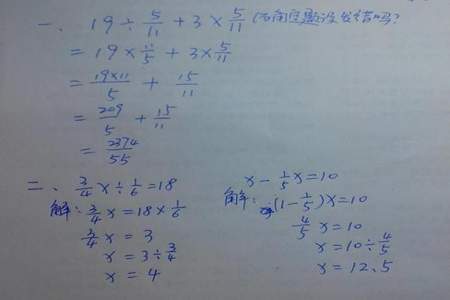 一、19÷5/11+3×5/11 (不确定题没发错吗?
=19×11/5+3×5/11
=19×11/5+15/11
=209/5+15/11
=2374/55
二、3/4x÷1/6=18
解:3/4x=18×1/6
3/4x=3
x=3÷3/4
x=4
x-1/5x=10
解:(1-1/5)x=10
4/5x=10
x=10÷4/5
x=12.5